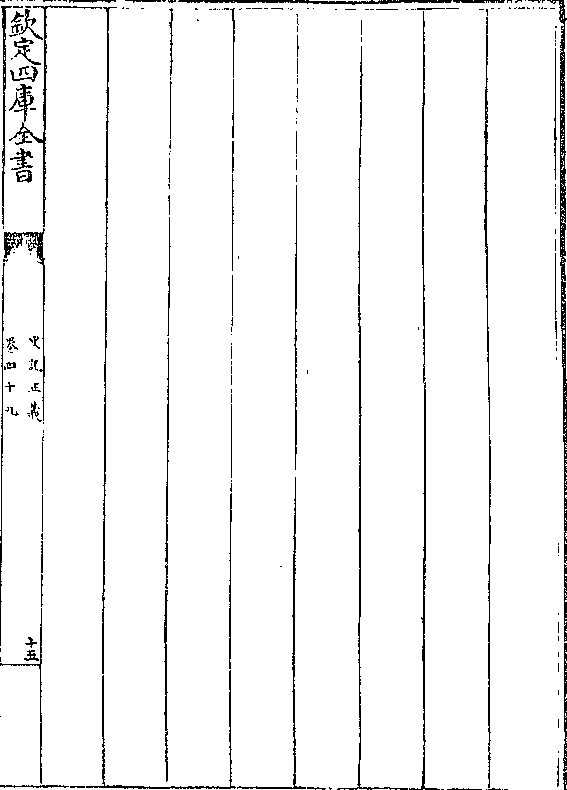 欽定四庫全書
史記正義
卷四十九
十五